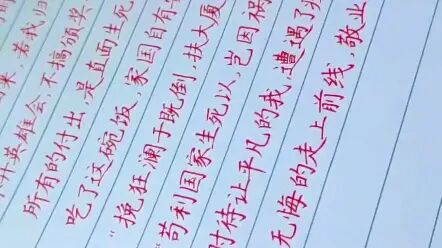 来，若我归
英雄会，不搞颁奖
所有的付出，是直面生死
吃了这碗饭，家国自有
“挽狂澜于既倒，扶大厦
“苟利国家生死以，岂因祸
时待让平凡的我，遭遇了
无悔的走上前线，敬业